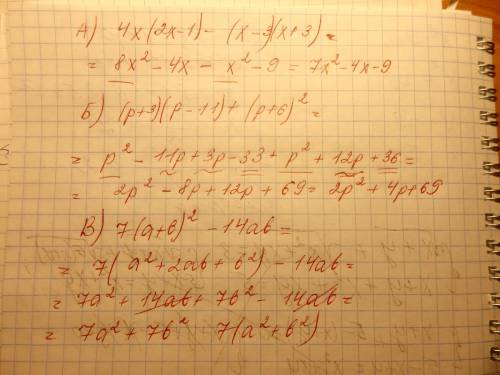 А) 4x(2x-1) - (x-3)(x+3) =
= 8x² - 4x - x² - 9 = 7x² - 4x - 9
Б) (p+3)(p-11) + (p+6)² =
= p² - 11p + 3p - 33 + p² + 12p + 36 =
= 2p² - 8p + 12p + 69 = 2p² + 4p + 69
В) 7(a+b)² - 14ab =
= 7(a² + 2ab + b²) - 14ab =
= 7a² + 14ab + 7b² - 14ab =
= 7a² + 7b² 7(a² + b²)